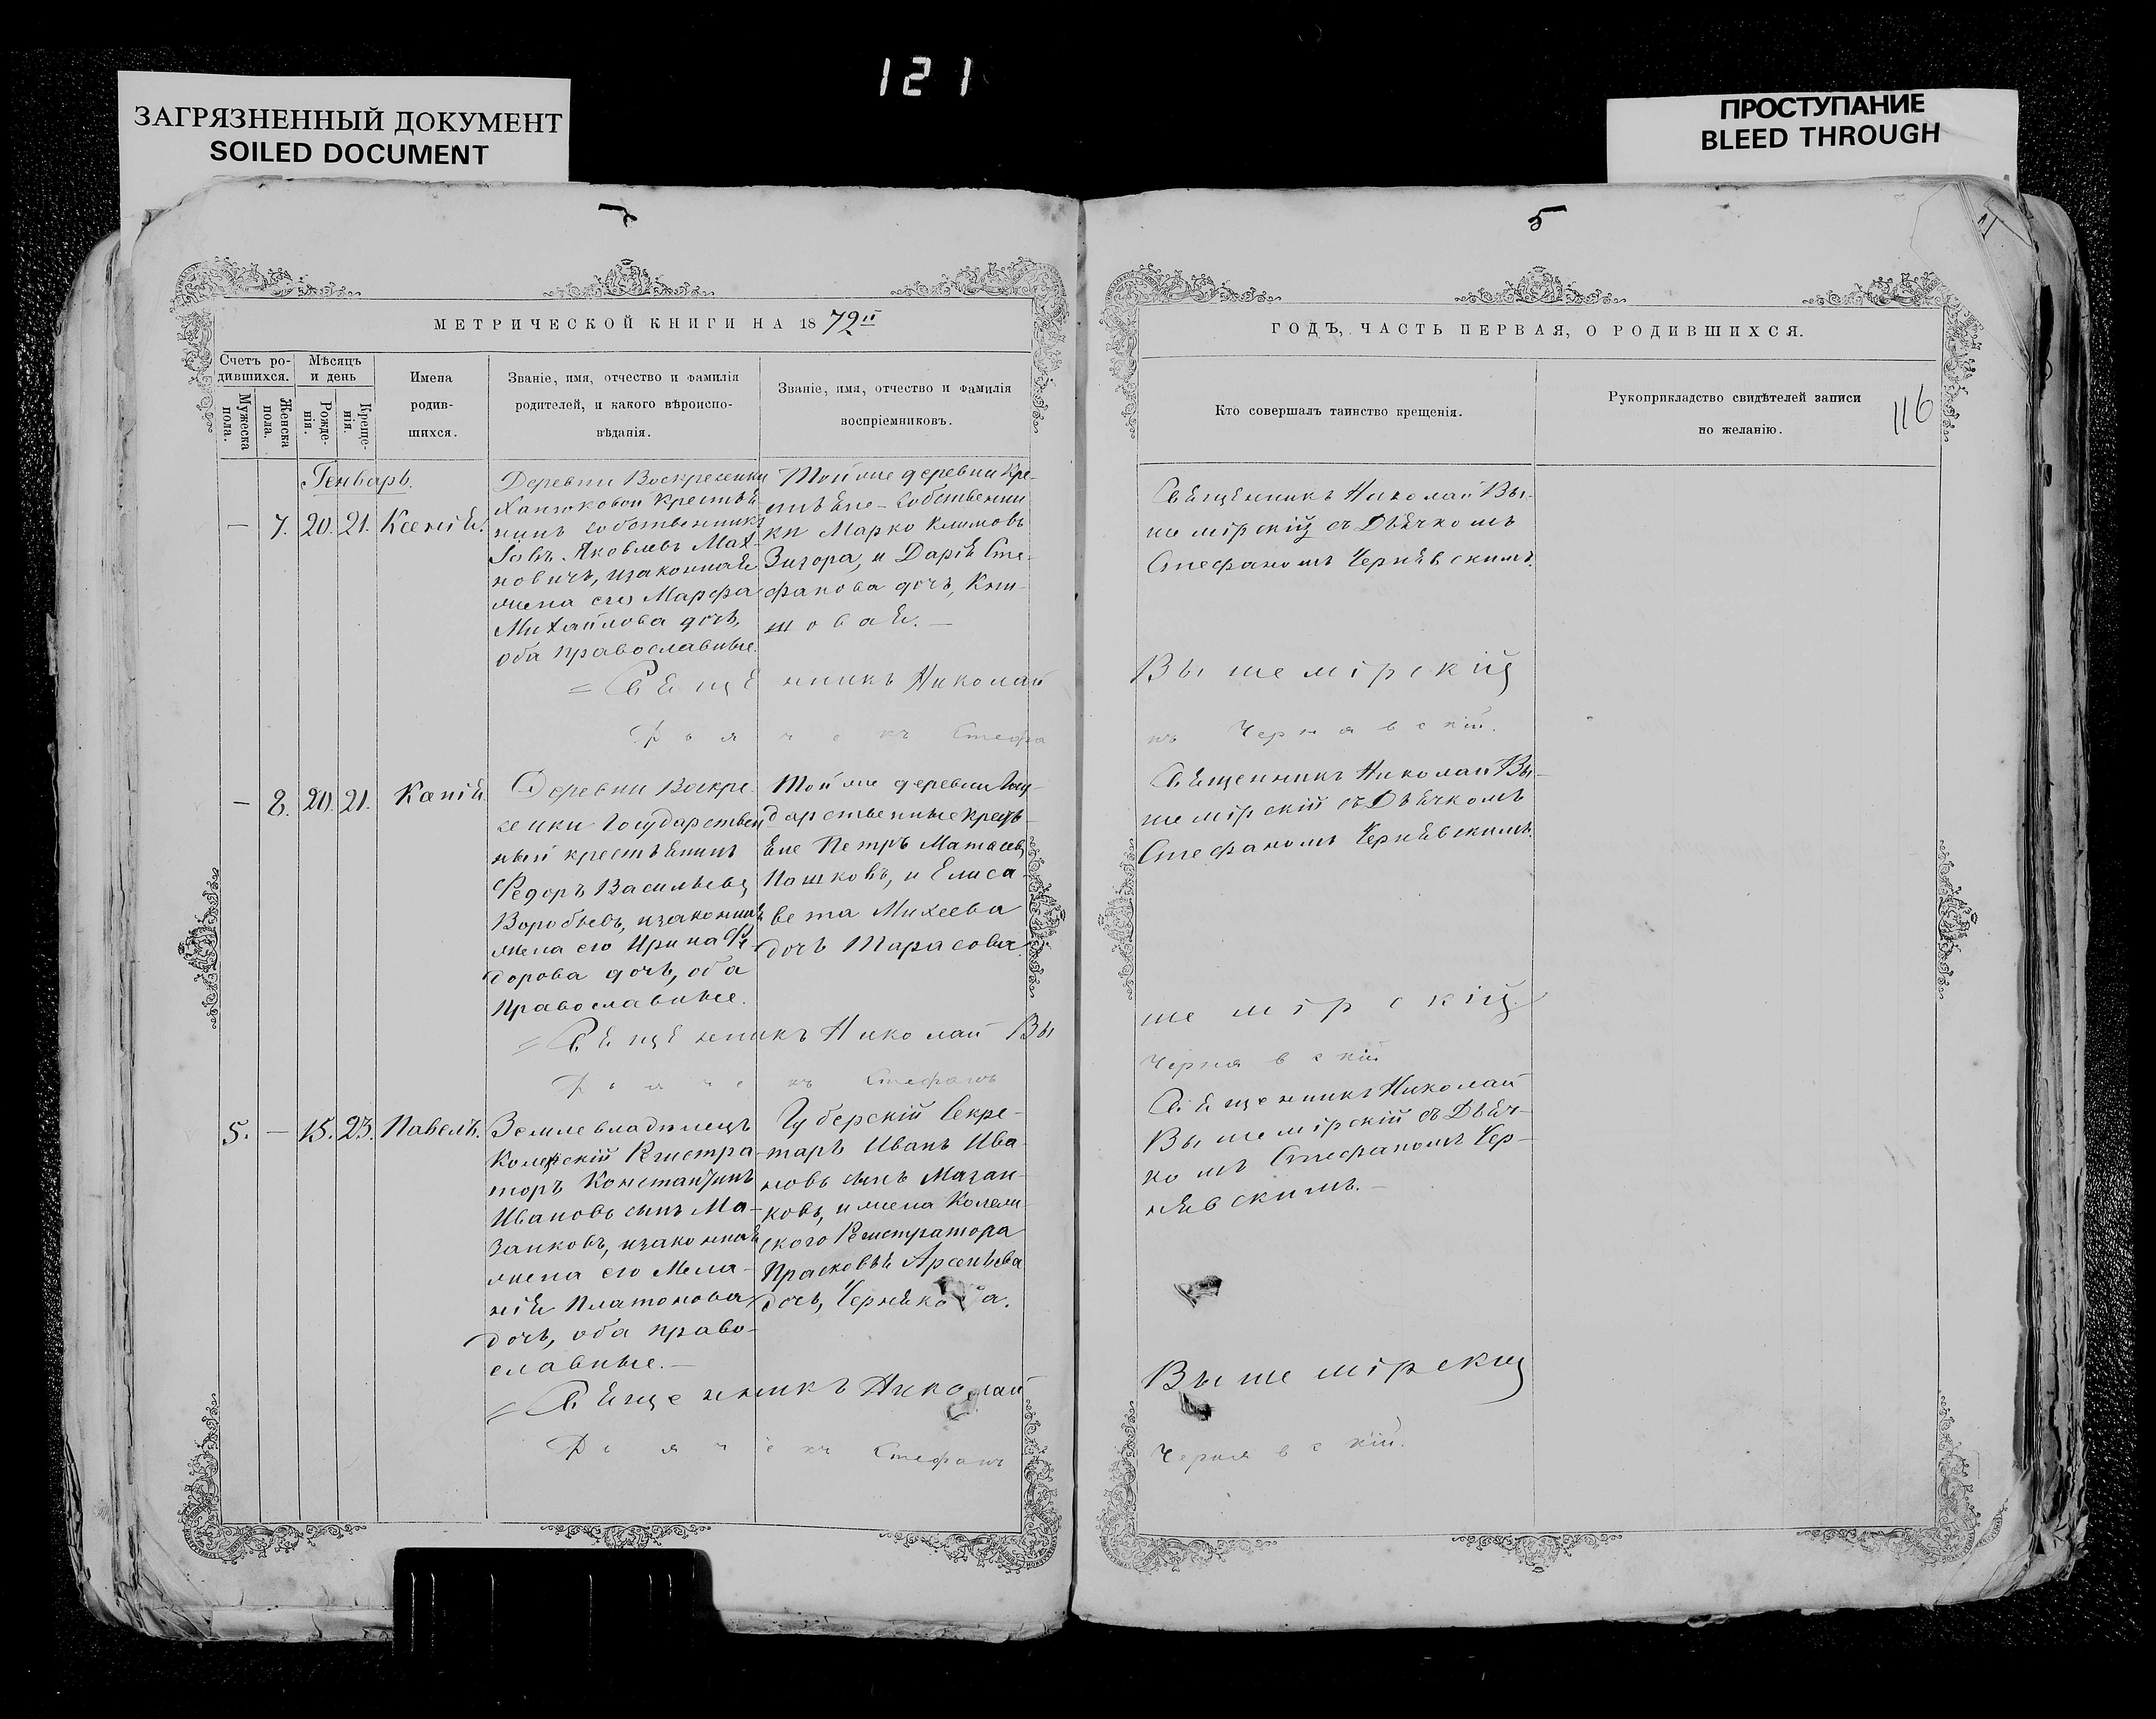 121
ЗАГРЯЗНЕННЫЙ ДОКУМЕНТ
SOILED DOCUMENT
ПРОСТУПАНИЕ
BLEED THROUGH
5
МЕТРИЧЕСКОЙ КНИГИ НА 1872
Счетъ ро-
дившихся.
Мужеска
пола.
Женска
пола.
Мѣсяцъ
и день
Рожде-
нія.
Креще-
нія.
Имена
родив-
шихся.
Званіе, имя, отчество и фамилія
родителей, и какого вѣроиспо-
вѣданія.
Званіе, имя, отчество и фамилія
воспріемниковъ.
Генварь.
— 7. 20. 21. Ксенія.
Деревни Воскресенки
крестья
нинъ собственникъ
Іовъ Яковлевъ Мах-
новичъ, и законная
жена его Марфа
Михайлова дочь,
оба православные.
Той же деревни кре-
стьяне-собственни
ки Марко Климовъ
и Дарія Сте-
фанова дочь,
= Священникъ Николай
Дьячокъ Стефа
— 8. 20. 21.
Деревни Воскре-
сенки Государствен
ный крестьянинъ
Федоръ Васильевъ
Воробьевъ, и законная
жена его Ирина Фе-
дорова дочь, оба
православные.
Той же деревни Госу-
дарственные кресть-
яне Петръ
Пашковъ, и Елиса-
вета Михеева
дочь Тарасова.
= Священникъ Николай Вы
Дьячекъ Стефанъ
5. — 15. 23. Павелъ.
Землевладѣлецъ
Колежскій Регистра-
торъ Константинъ
Ивановъ сынъ Ма-
занковъ, и законная
жена его Мела-
нія Платонова
дочь, оба право-
славные.—
Губерскій Секре-
тарь Иванъ Ива-
новъ сынъ Мазан-
ковъ, и жена Колеж-
скаго Регистратора
Прасковья Арсеньева
дочь,
= Священникъ Николай
Дьячекъ Стефанъ
5
ГОДЪ, ЧАСТЬ ПЕРВАЯ, О РОДИВШИХСЯ.
Кто совершалъ таинство крещенія.
Рукоприкладство свидѣтелей записи
по желанію.
116
Священникъ Николай Вы-
шемірскій съ Дьячкомъ
Стефаномъ Чернявскимъ.
Вышемірскій
нъ Чернавскій.
Священникъ Николай Вы-
шемірскій съ Дьячкомъ
Стефаномъ Чернявскимъ.
шемірскій.
Чернявскій
Священникъ Николай
Вышемірскій съ Дьяч-
комъ Стефаномъ Чер-
нявскимъ.—
Вышемірскій
Чернявскій.